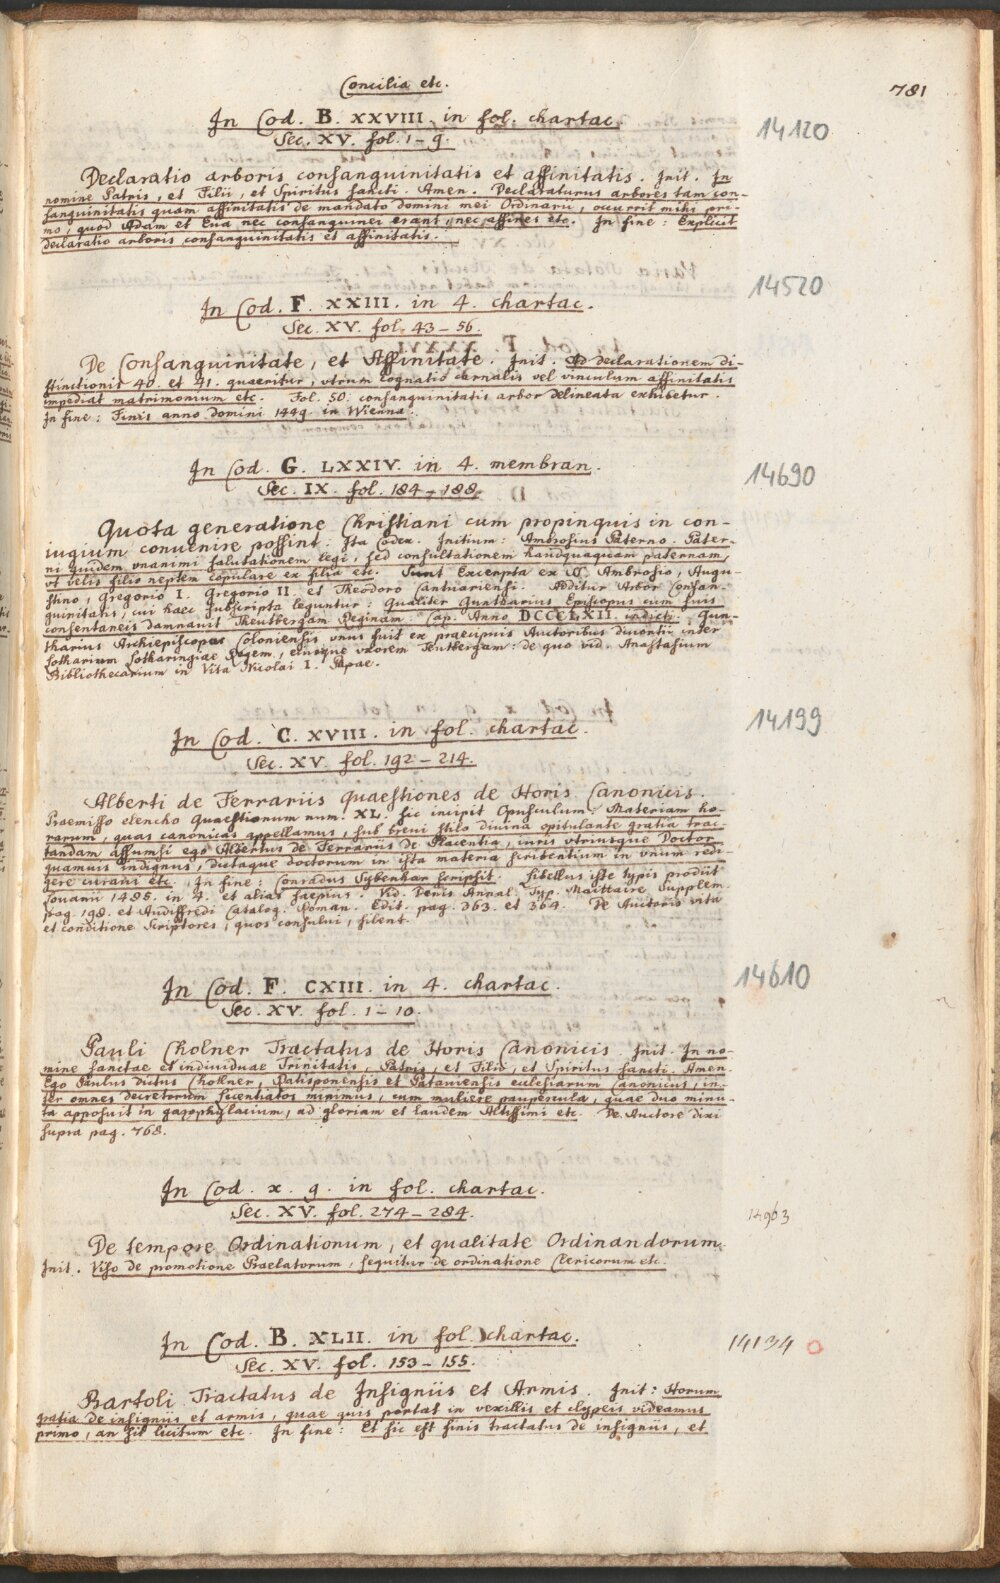 Concilia etc.
781
In Cod. B. XXVIII. in fol. chartac.
14120
Sec. XV. fol. 1–9.
Declaratio arboris consanguinitatis et affinitatis. Init. In
nomine Patris, et Filii, et Spiritus Sancti. Amen. Declaraturus arbores tam con-
sanguinitatis quam affinitatis de mandato domini mei Ordinarii, occurrit mihi pri-
mo, quod Adam et Eua nec consanguinei erant, nec affines etc. In fine: Explicit
declaratio arboris consanguinitatis et affinitatis.
14520
In Cod. F. XXIII. in 4. chartac.
Sec. XV. fol. 43–56.
De Consanguinitate, et Affinitate. Init. Ad declarationem di-
stinctionis 40. et 41. quaeritur, utrum cognatio carnalis vel vinculum affinitatis
impediat matrimonium etc. Fol. 50. consanguinitatis arbor delineata exhibetur.
In fine: Finis anno domini 1449. in Wienna.
In Cod. G. LXXIV. in 4. membran.
14690
Sec. IX. fol. 184–188.
Quota generatione Christiani cum propinquis in con-
iugium conuenire possint. Ita Codex. Initium: Ambrosius Paterno. Pater-
ni quidem vnanimi salutationem legi, sed consultationem haudquaquam paternam,
vt velis filio neptem copulare ex filio etc. Sunt Excerpta ex S. Ambrosio, Augu-
stino, Gregorio I. Gregorio II. et Theodoro Cantuariensi. Additur Arbor Consan-
guinitatis, cui haec subscripta leguntur: Qualiter Guntharius Episcopus cum suis
consentaneis damnauit Theutbergam Reginam. Cap. Anno DCCCLXII. indicti. Gun-
tharius Archiepiscopus Coloniensis vnus fuit ex praecipuis Auctoribus diuortii inter
Lotharium Lotharingiae Regem, eiusque vxorem Teutbergam: de quo vid. Anastasium
Bibliothecarium in Vita Nicolai I. Papae.
14199
In Cod. C. XVIII. in fol. chartac.
Sec. XV. fol. 192–214.
Alberti de Ferrariis quaestiones de Horis Canonicis.
Praemisso elencho Quaestionum num. XL. sic incipit Opusculum: Materiam ho-
rarum, quas canonicas appellamus, sub breui stilo diuina opitulante gratia trac-
tandam assumsi ego Albertus de Ferrariis de Placentia, iuris vtriusque Doctor
quamuis indignus, dictaque doctorum in ista materia scribentium in vnum redi-
gere curaui etc. In fine: Conradus Sybenhar scripsit. Libellus iste typis prodiit
Louanii 1485. in 4. et alias saepius. Vid. Denis Annal. Typ. Maittaire Supplem.
pag. 198. et Audiffredi Catalog. Roman. Edit. pag. 363. et 364. De Auctoris vita
et conditione Scriptores, quos consului, silent.
In Cod. F. CXIII. in 4. chartac.
14610
Sec. XV. fol. 1–10.
Pauli Cholner Tractatus de Horis Canonicis. Init. In no-
mine sanctae et indiuiduae Trinitatis, Patris, et Filii, et Spiritus Sancti. Amen.
Ego Paulus dictus Chollner, Ratisponensis et Patauiensis ecclesiarum Canonicus, in-
ter omnes decretorum licentiatos minimus, cum muliere paupercula, quae duo minu-
ta apposuit in gazophylacium, ad gloriam et laudem Altissimi etc. De Auctore dixi
supra pag. 768.
In Cod. x. 9. in fol. chartac.
Sec. XV. fol. 274–284.
14963
De tempore Ordinationum, et qualitate Ordinandorum.
Init. Viso de promotione Praelatorum, sequitur de ordinatione Clericorum etc.
In Cod. B. XLII. in fol. chartac.
14134
Sec. XV. fol. 153–155.
Bartoli Tractatus de Insigniis et Armis. Init: Horum
gratia de insigniis et armis, quae quis portat in vexillis et clypeis videamus
primo, an sit licitum etc. In fine: Et sic est finis tractatus de insigniis, et